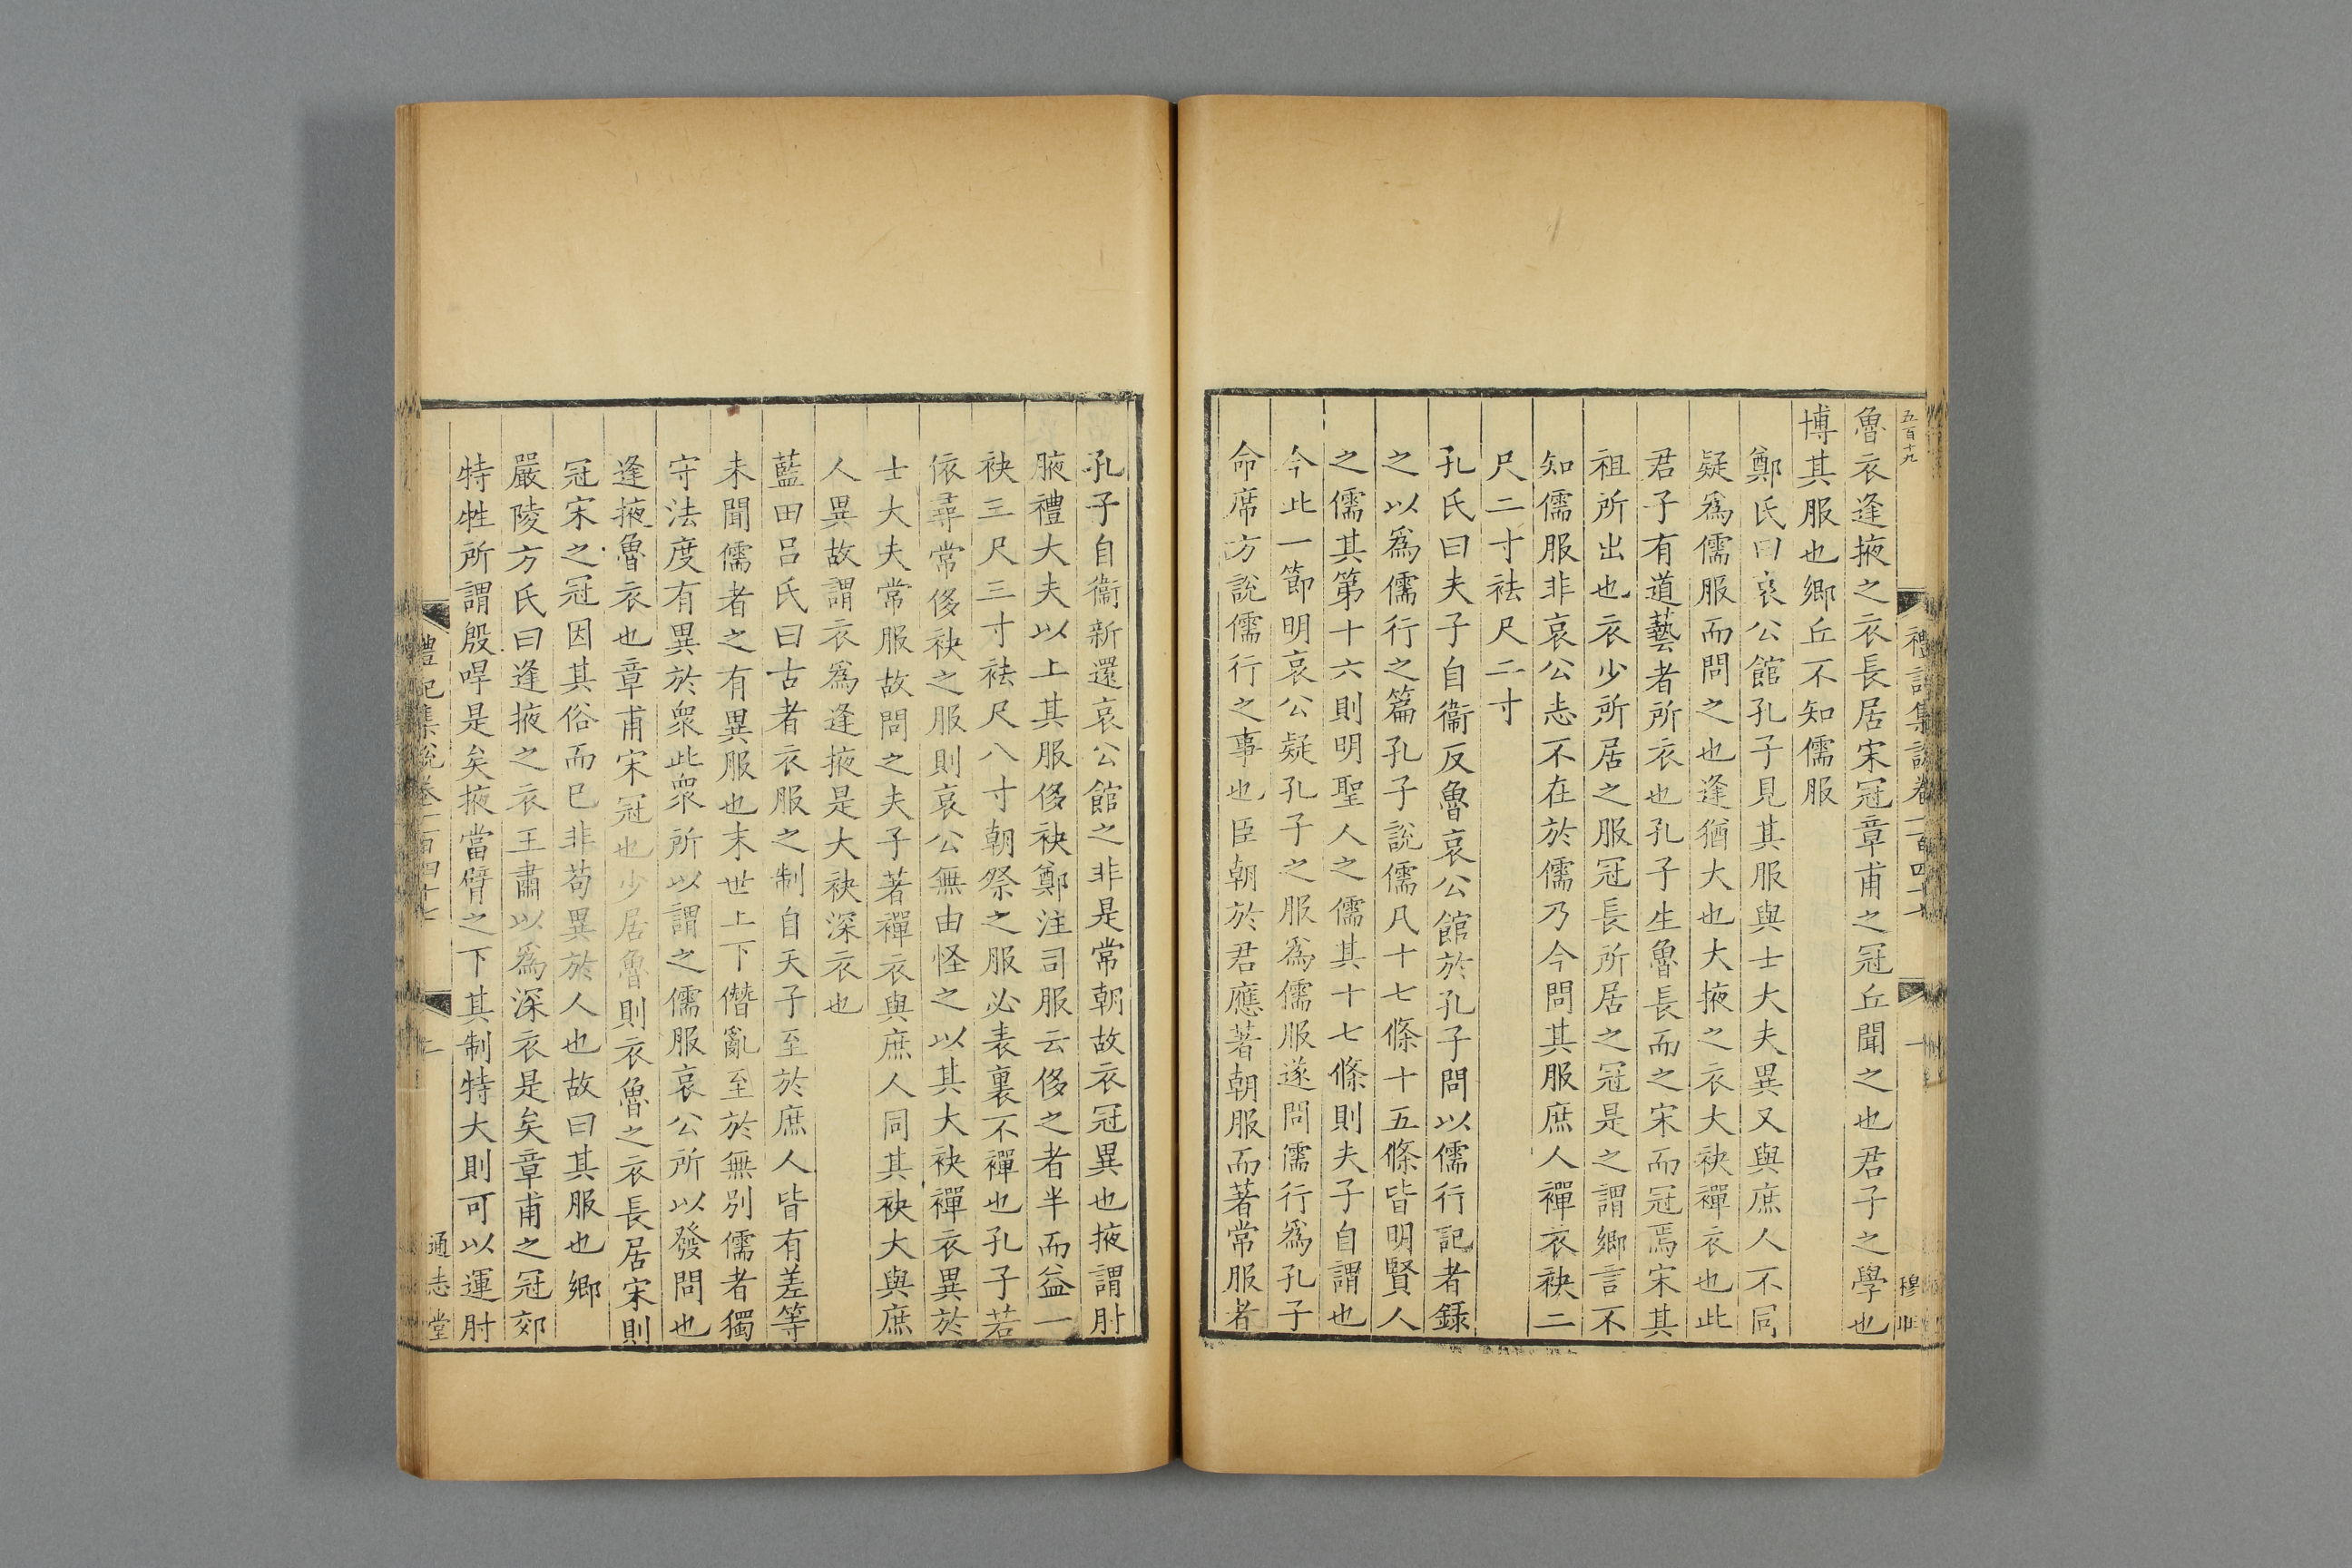 五百十九
禮記集說卷一百四十七
一
穆
魯衣逢掖之衣長居宋冠章甫之冠丘聞之也君子之學也
博其服也鄉丘不知儒服
鄭氏曰哀公館孔子見其服與士大夫異又與庶人不同
疑爲儒服而問之也逢猶大也大掖之衣大袂禪衣也此
君子有道藝者所衣也孔子生魯長而之宋而冠焉宋其
祖所出也衣少所居之服冠長所居之冠是之謂鄉言不
知儒服非哀公志不在於儒乃今問其服庶人禪衣袂二
尺二寸袪尺二寸
孔氏曰夫子自衞反魯哀公館於孔子問以儒行記者録
之以爲儒行之篇孔子說儒凡十七條十五條皆明賢人
之儒其第十六則明聖人之儒其十七條則夫子自謂也
今此一節明哀公疑孔子之服爲儒服遂問儒行爲孔子
命席方說儒行之事也臣朝於君應著朝服而著常服者
孔子自衞新還哀公館之非是常朝故衣冠異也掖謂肘
腋禮大夫以上其服侈袂鄭注司服云侈之者半而益一
袂三尺三寸袪尺八寸朝祭之服必表裏不禪也孔子若
依尋常侈袂之服則哀公無由怪之以其大袂禪衣異於
士大夫常服故問之夫子著禪衣與庶人同其袂大與庶
人異故謂衣爲逢掖是大袂深衣也
藍田呂氏曰古者衣服之制自天子至於庶人皆有差等
未聞儒者之有異服也末世上下僭亂至於無別儒者獨
守法度有異於衆此衆所以謂之儒服哀公所以發問也
逢掖魯衣也章甫宋冠也少居魯則衣魯之衣長居宋則
冠宋之冠因其俗而已非苟異於人也故曰其服也鄉
嚴陵方氏曰逢掖之衣王肅以爲深衣是矣章甫之冠郊
特牲所謂殷哻是矣掖當臂之下其制特大則可以運肘
禮記集說卷一百四十七
二
通志堂